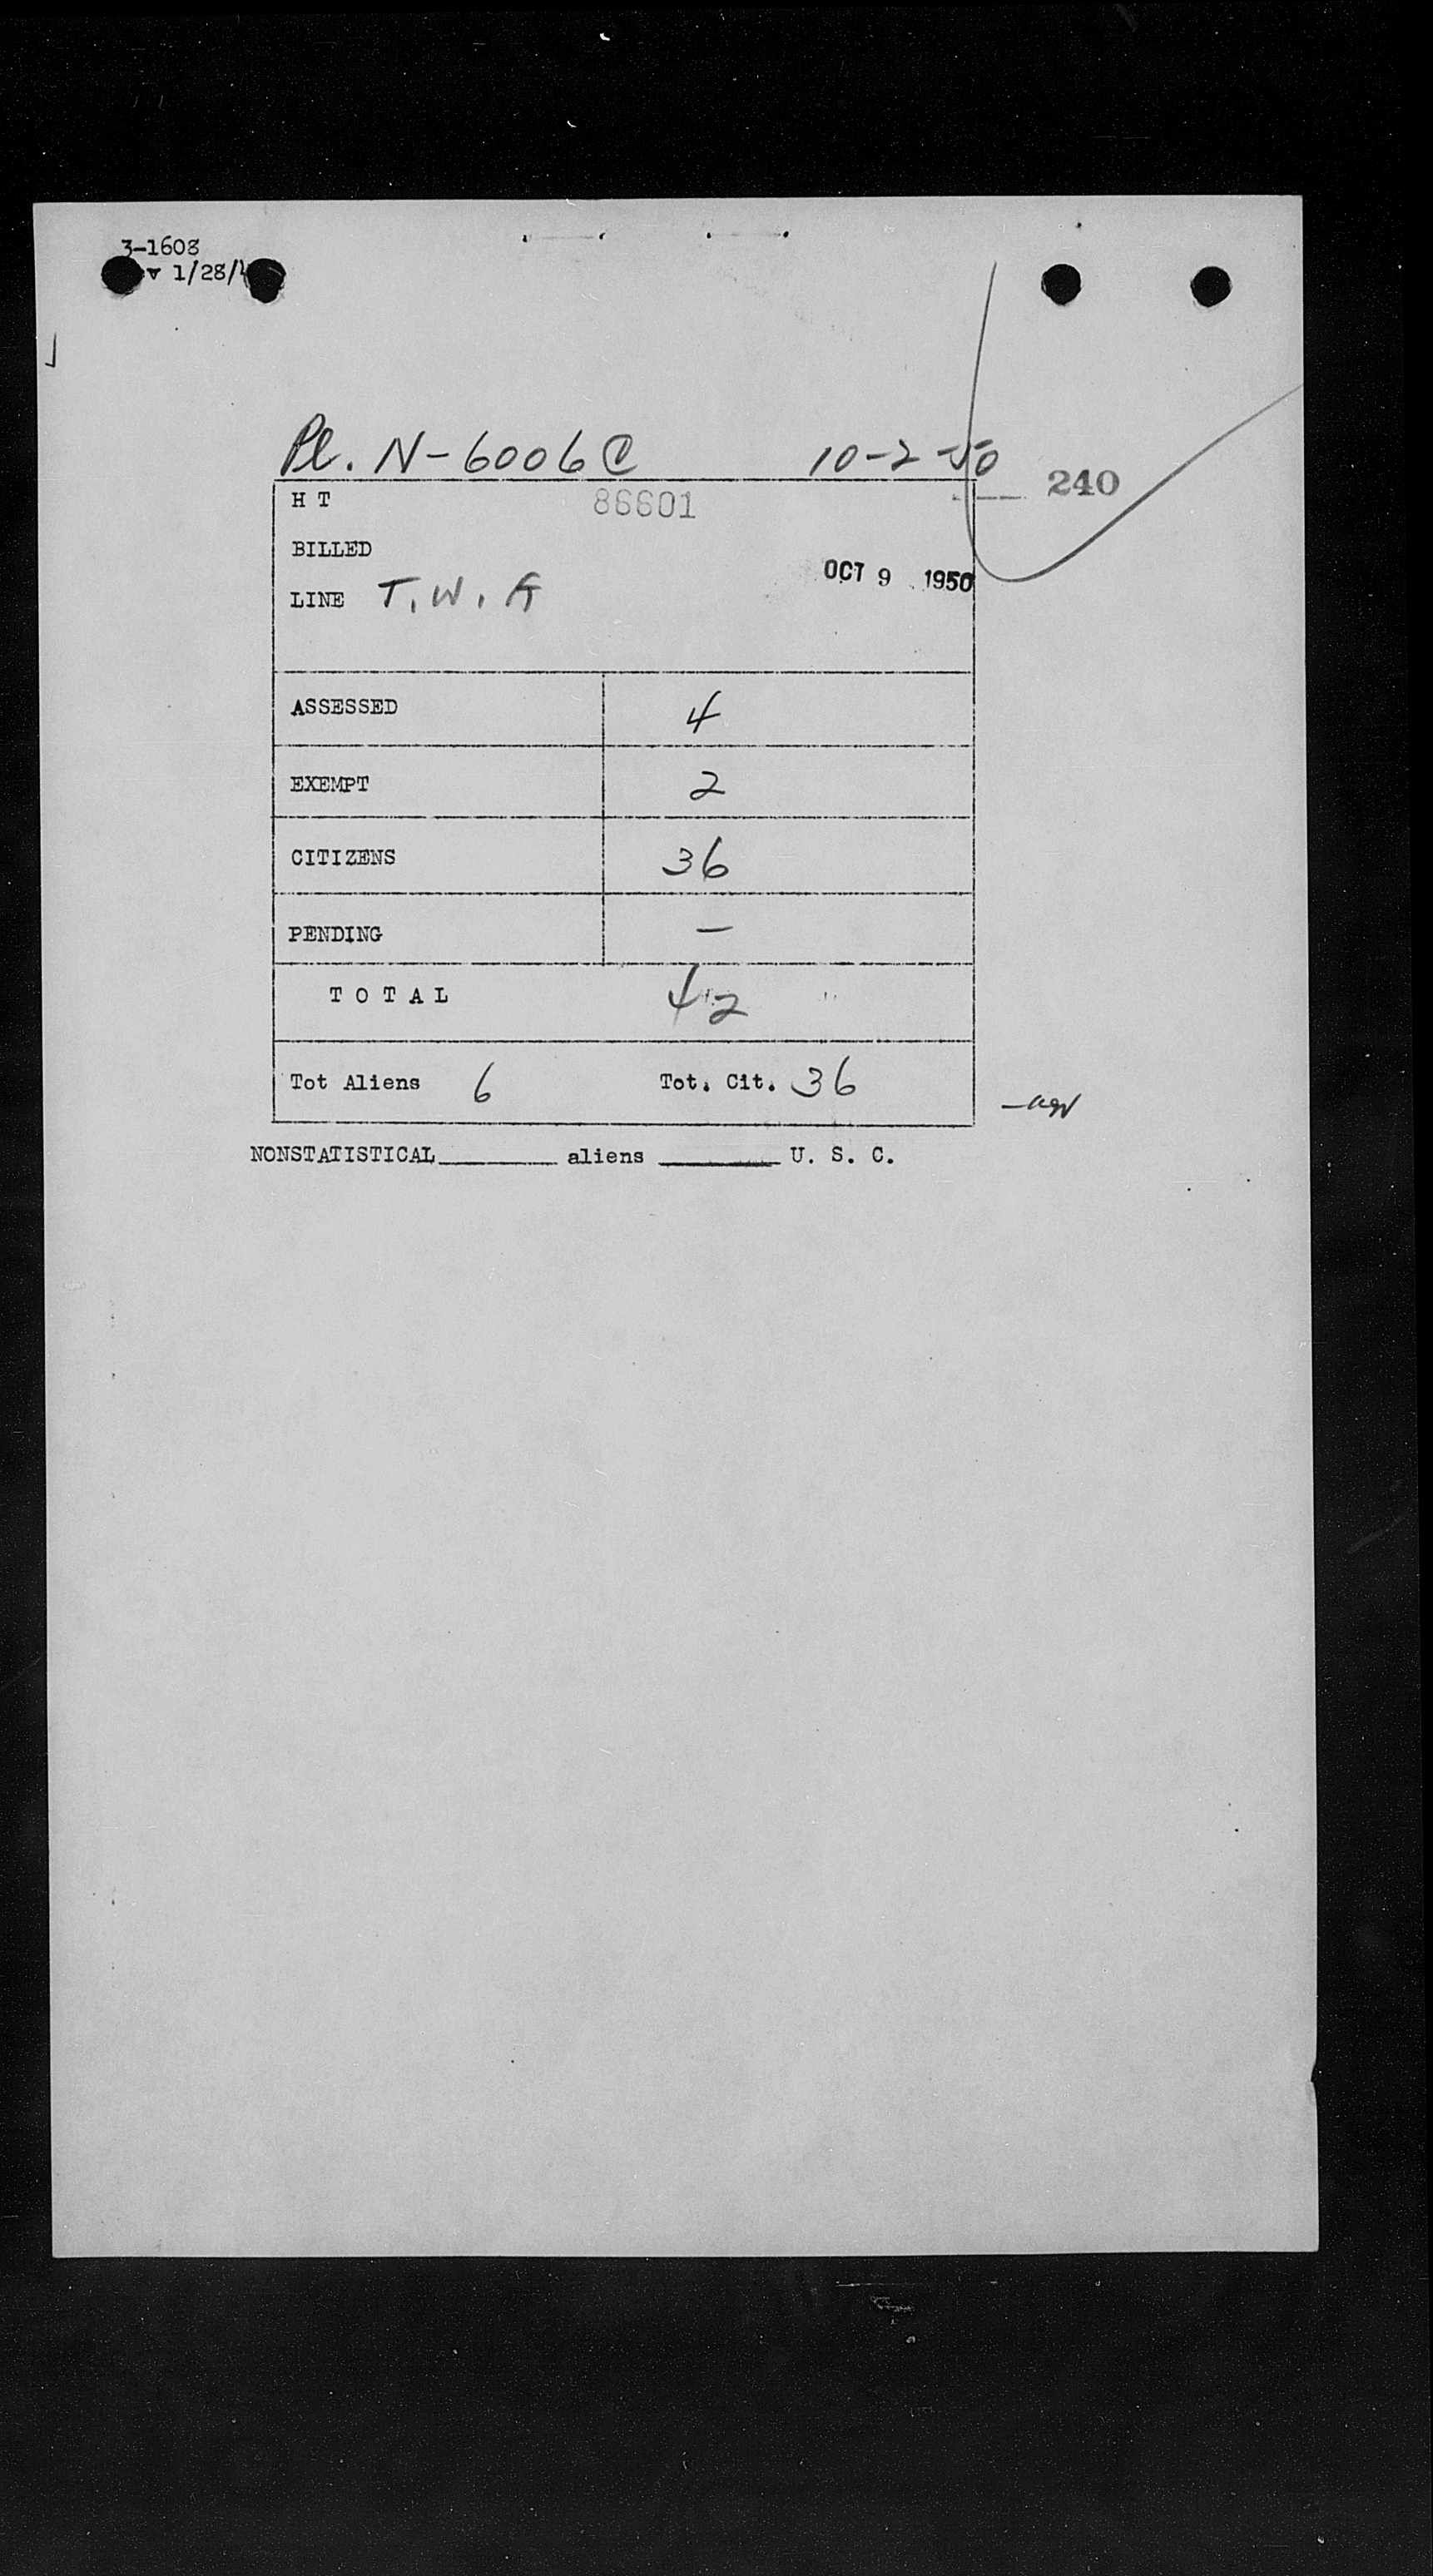 3-1608
v 1/28/
Pl. N-6006C 10-2-50
240
H T 86601
BILLED
OCT 9 1950
LINE T.W.A
ASSESSED 4
EXEMPT 2
CITIZENS 36
PENDING —
T O T A L 42
Tot Aliens 6 Tot. Cit. 36
NONSTATISTICAL________ aliens ________ U. S. C.